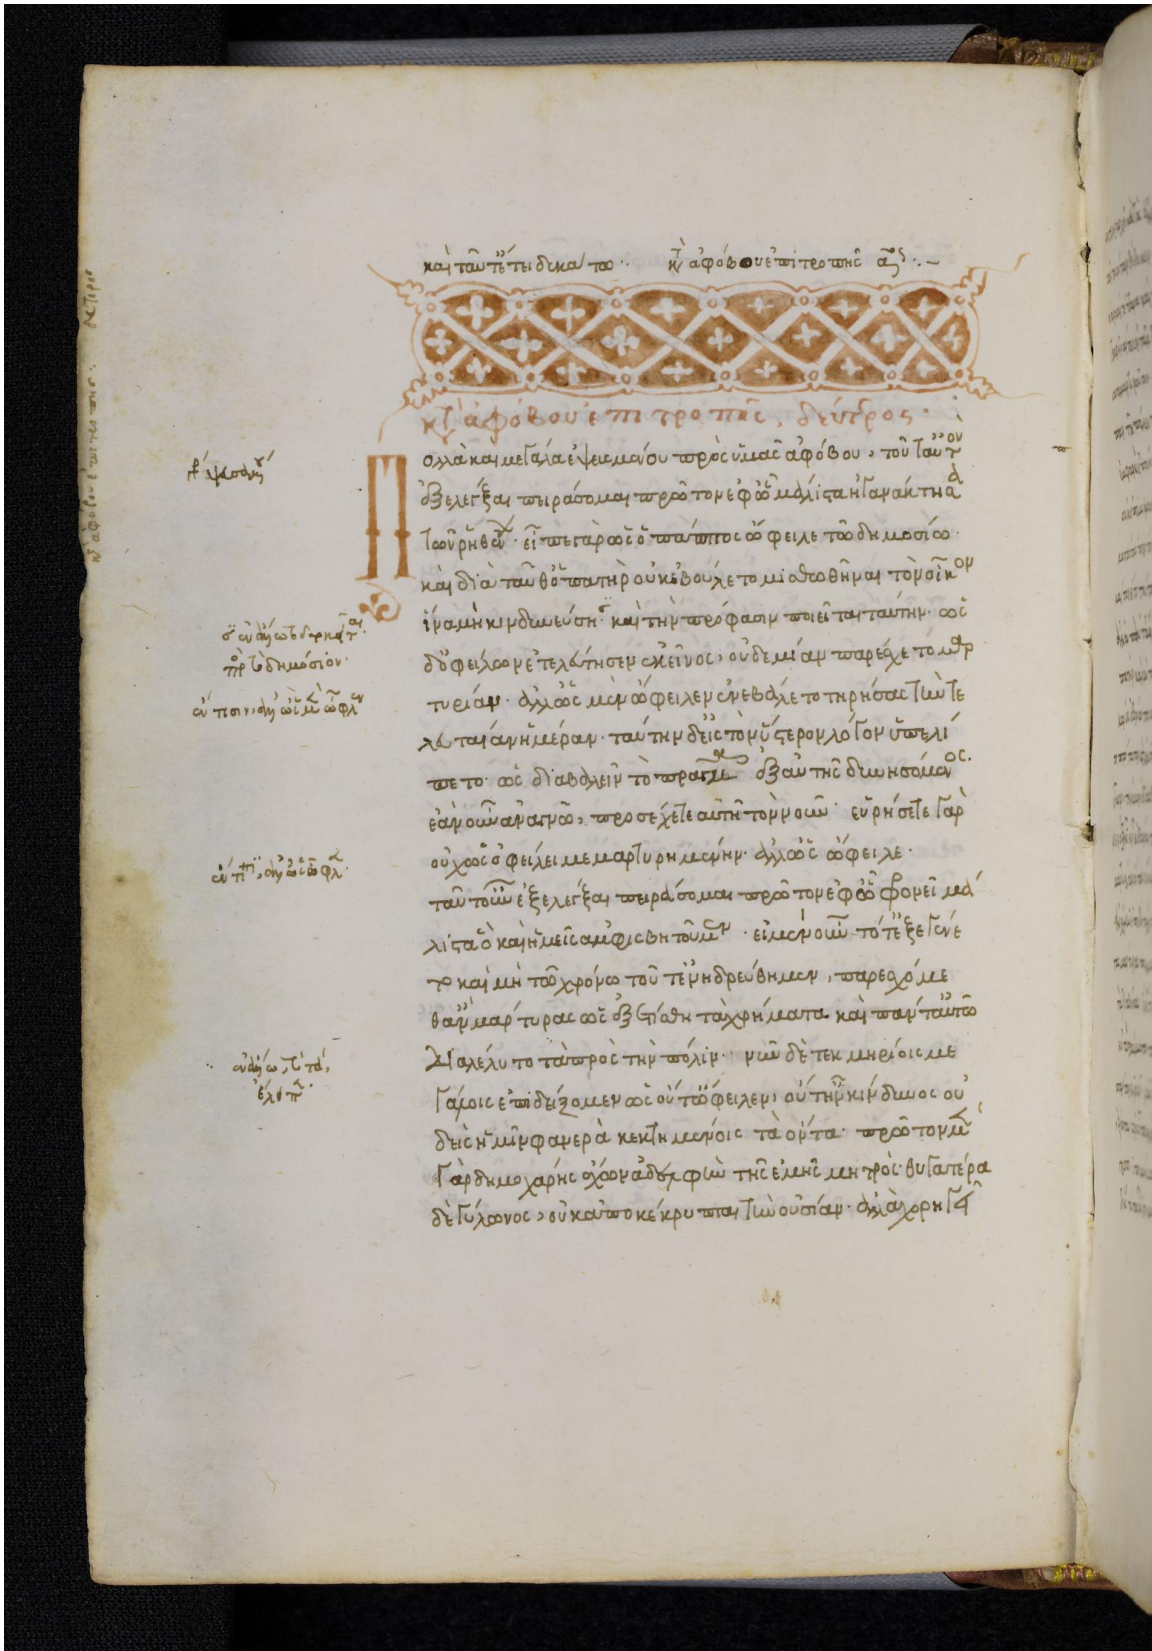 καὶ ταῦτ' ἔτει δεκάτω·. κτ̀ ἀφόβου ἐπιτροπῆς α̅ος·.~
κτ̀ ἀφόβου ἐπιτροπῆς, δεύτερος·
Πολλὰ καὶ μεγάλα ἐψευσμένου πρὸς ὑμᾶς ἀφόβου, τοῦτ' αὐτὸν
ἐξελέγξαι πειράσομαι πρῶτον ἐφ' ὧ μάλιστα ἠγανάκτησα
τῶν ῥηθέντων· εἶπε γὰρ ὡς ὁ πάππος ὤφειλε τῶ δημοσίω·
καὶ διὰ ταῦθ' ὁ πατὴρ οὐκ ἐβούλετο μισθωθῆναι τὸν οἶκον
ἵνα μὴ κινδυνεύση· καὶ τὴν πρόφασιν ποιεῖται ταύτην· ὡς
δ' ὀφείλων ἐτελεύτησεν ἐκεῖνος, οὐδεμίαν παρέσχετο μαρ
τυρίαν· ἀλλ' ὡς μὲν ὤφειλεν ἐνεβάλετο τηρήσας τὴν τε
λευταίαν ἡμέραν· ταύτην δ' εἰς τὸν ὕστερον λόγον ὑπελί
πετο· ὡς διαβαλεῖν τὸ πρᾶγμα ἐξ αὐτῆς δυνησόμενος·
ἐὰν οὖν ἀναγνῶ, προσέχετε αὐτῆ τὸν νοῦν· εὑρήσετε γὰρ
οὐχ ὡς ὀφείλει μεμαρτυρημένην· ἀλλ' ὡς ὤφειλε·
ταῦτ' οὖν ἐξελέγξαι πειράσομαι πρῶτον ἐφ' ὧ φρονεῖ μά
λιστα ὃ καὶ ἡμεῖς ἀμφισβητοῦμεν· εἰ μὲν οὖν τότ' ἐξεγένε
το καὶ μὴ τῶ χρόνω τοῦτ' ἐνηδρεύθημεν, παρεσχόμε
θ' ἂν μάρτυρας ὡς ἐξετίσθη τὰ χρήματα καὶ πάντ' αὐτῶ
διαλέλυτο τὰ πρὸς τὴν πόλιν· νῦν δὲ τεκμηρίοις με
γάλοις ἐπιδείξομεν ὡς οὔτ' ὤφειλεν, οὔτ' ἦν κίνδυνος οὐ
δεὶς ἡμῖν φανερὰ κεκτημένοις τὰ ὄντα· πρῶτον μὲν
γὰρ δημοχάρης ἔχων ἀδελφὴν τῆς ἐμῆς μητρὸς· θυγατέρα
δὲ γύλωνος, οὐκ ἀποκέκρυπται τὴν οὐσίαν· ἀλλὰ χορηγεῖ